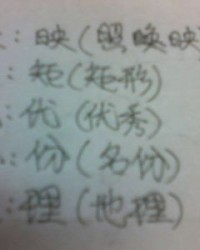 ：映（照映
：矩（矩形）
：优（优秀）
：份（名份）
：理（地理）